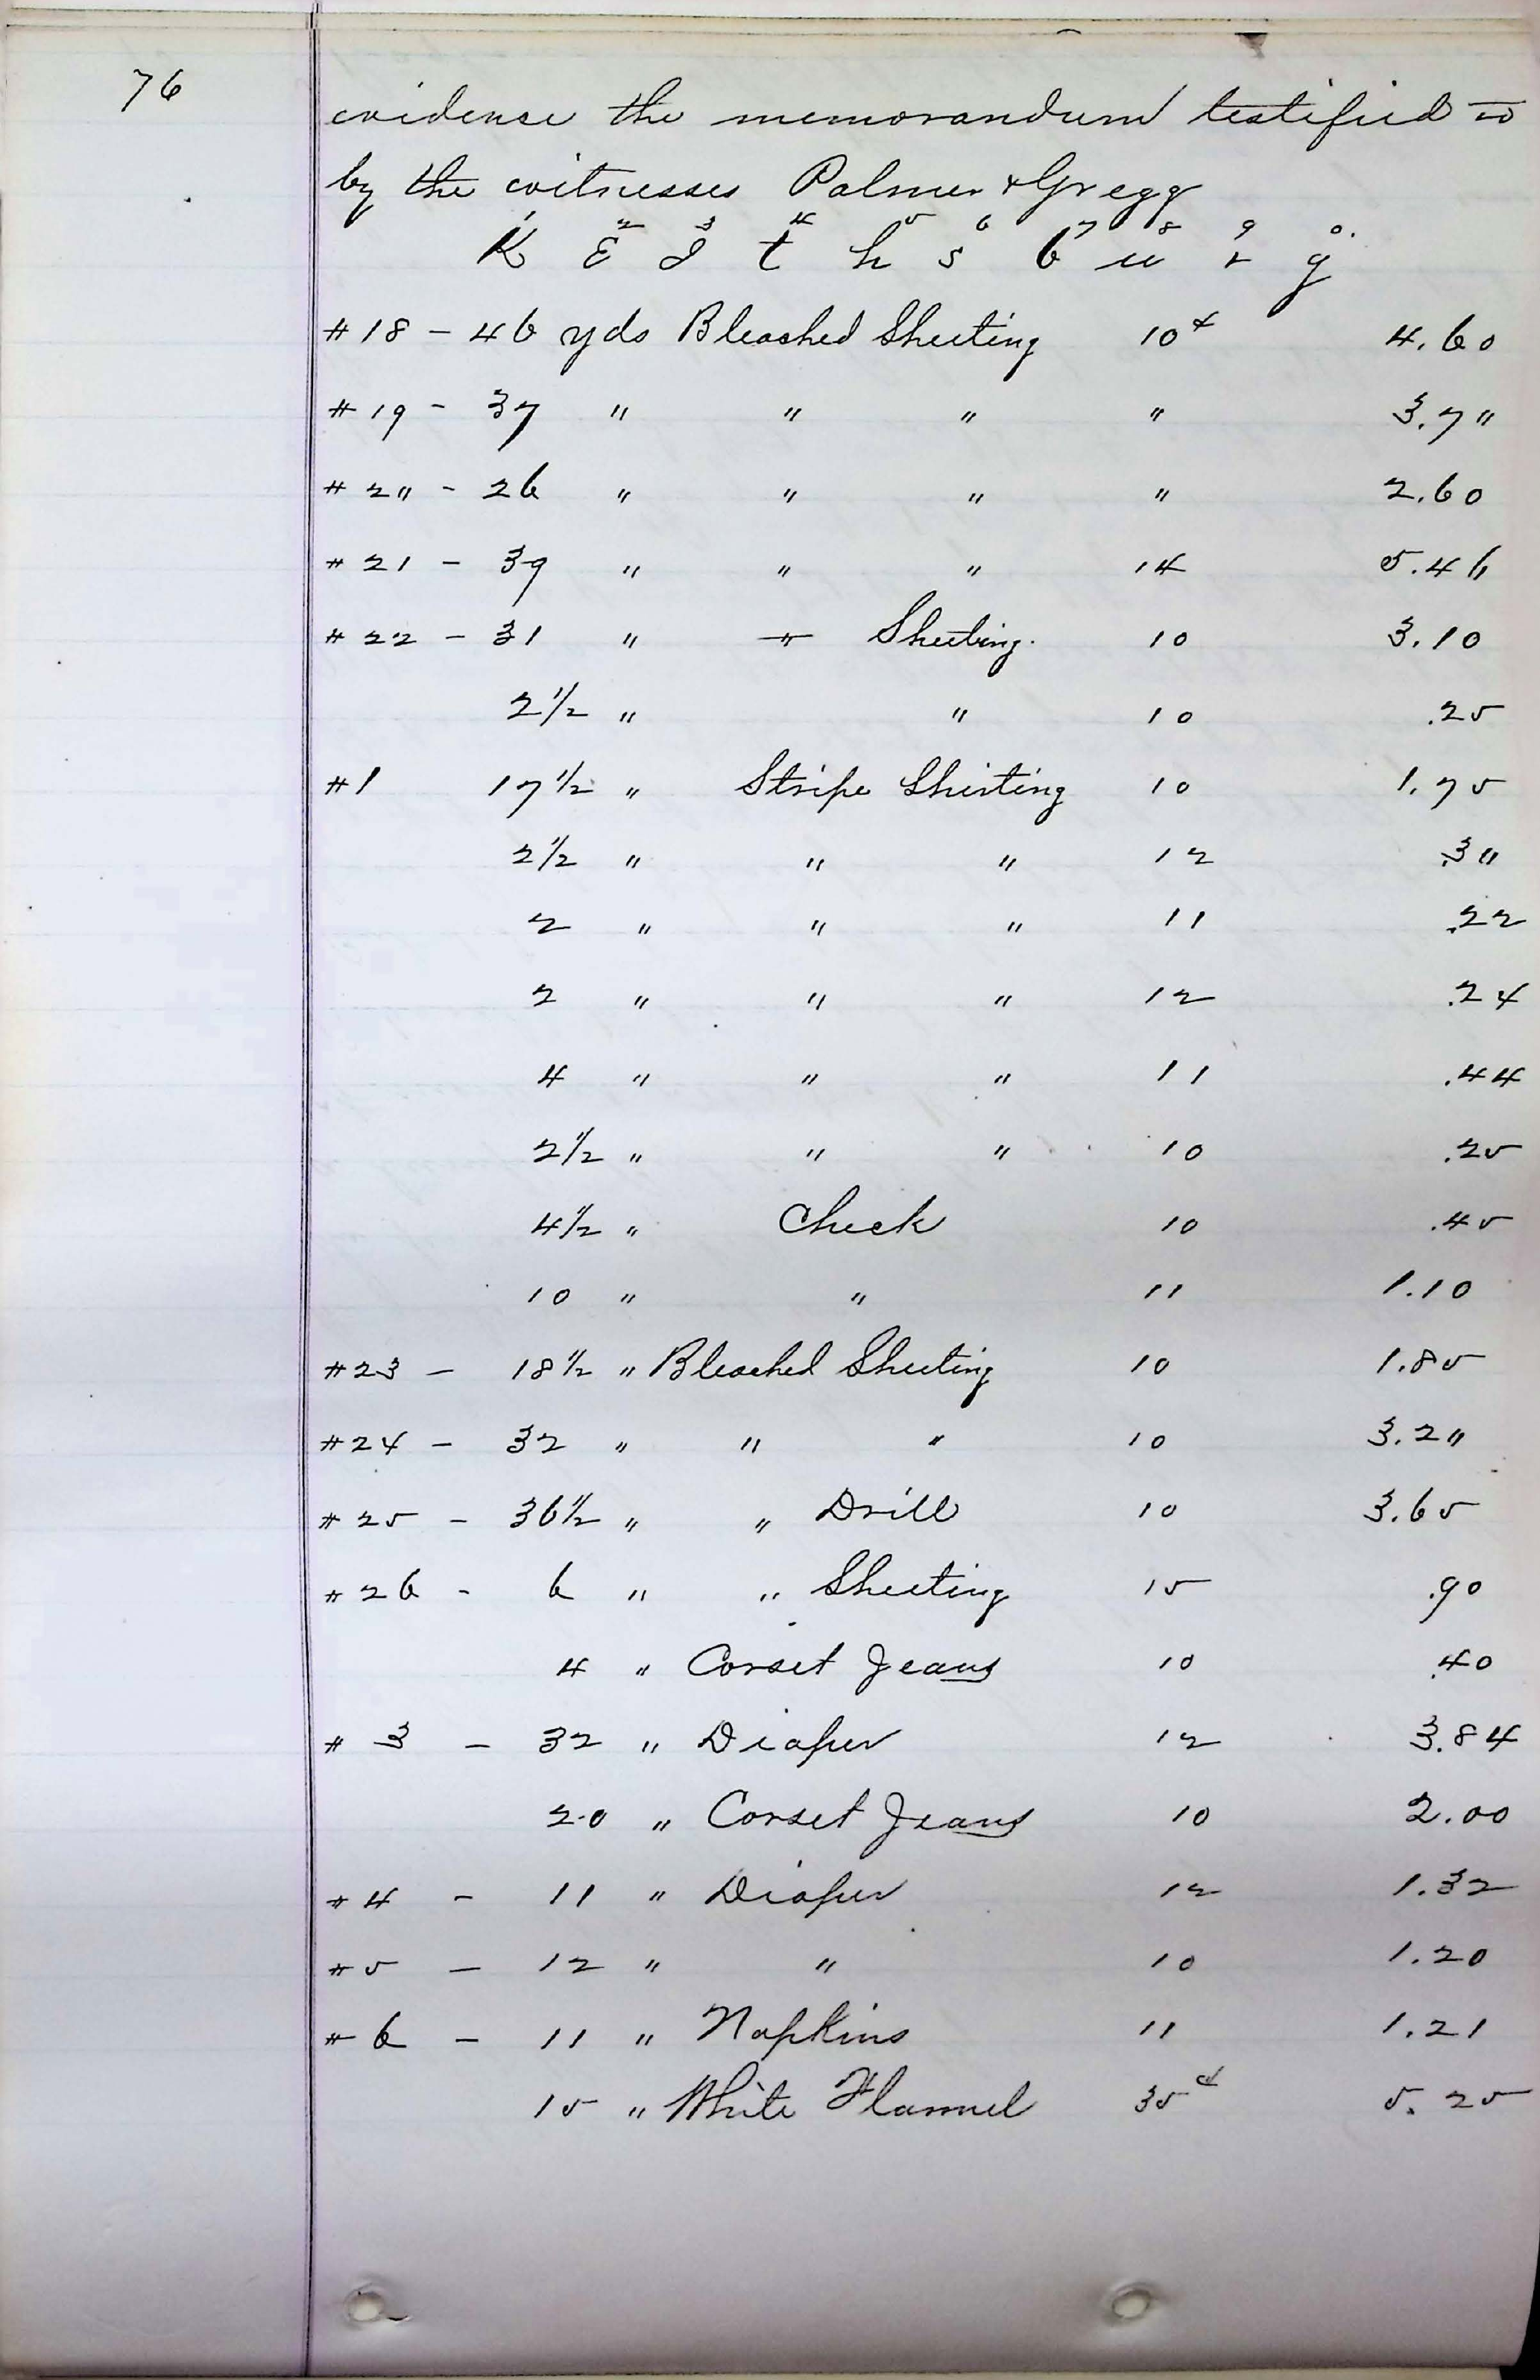 76
evidence the memorandum testified to
by the witnesses Palmer & Gregg
1 2 3 4 5 6 7 8 9 0.
K E I t h s b u r g
#18 - 46 yds Bleached Sheeting 10¢ 4.60
#19 - 37 " " " " 3.7"
#2" - 26 " " " " 2.60
#21 - 39 " " " 14 5.46
#22 - 31 " " Sheeting. 10 3.10
2½ " " 10 .25
#1 17½ " Stripe Shirting 10 1.75
2½ " " " 12 .3"
2 " " " 11 .22
2 " " " 12 .24
4 " " " 11 .44
2½ " " " 10 .25
4½ " Check 10 .45
10 " " 11 1.10
#23 - 18½ " Bleached Sheeting 10 1.85
#24 - 32 " " " 10 3.2"
#25 - 36½ " " Drill 10 3.65
#26 - 6 " " Sheeting 15 .90
4 " Corset Jeans 10 .40
#3 - 32 " Diaper 12 3.84
20 " Corset Jeans 10 2.00
#4 - 11 " Diaper 12 1.32
#5 - 12 " " 10 1.20
#6 - 11 " Napkins 11 1.21
15 " White Flannel 35¢ 5.25